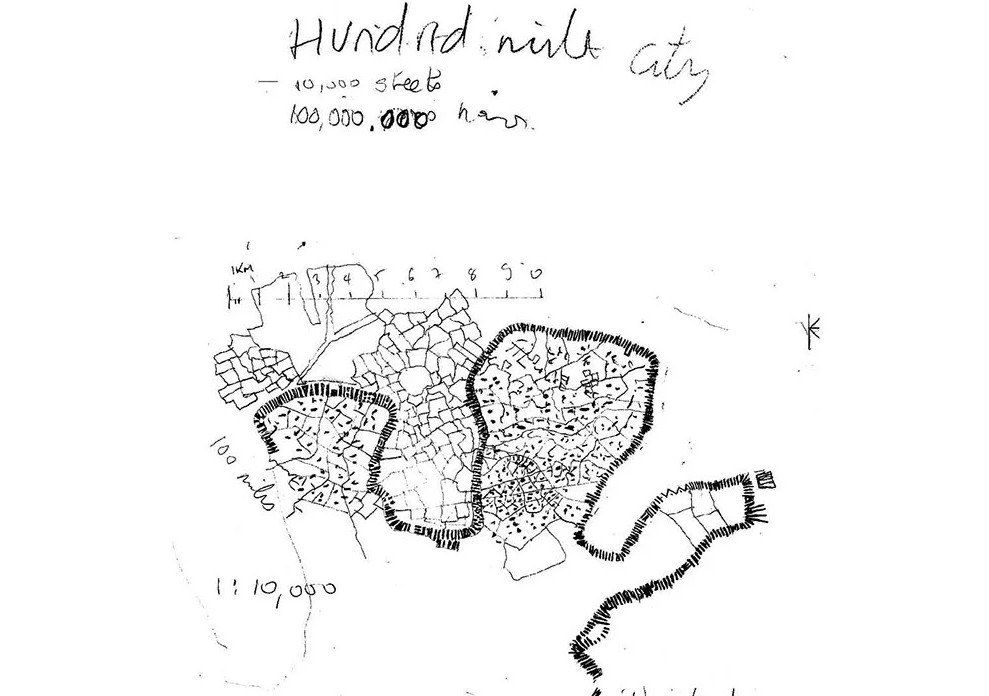 Hundred mile City
– 10,000 streets
100,000,000
1KM 2 3 4 5 6 7 8 9 0
100 mile
1:10,000